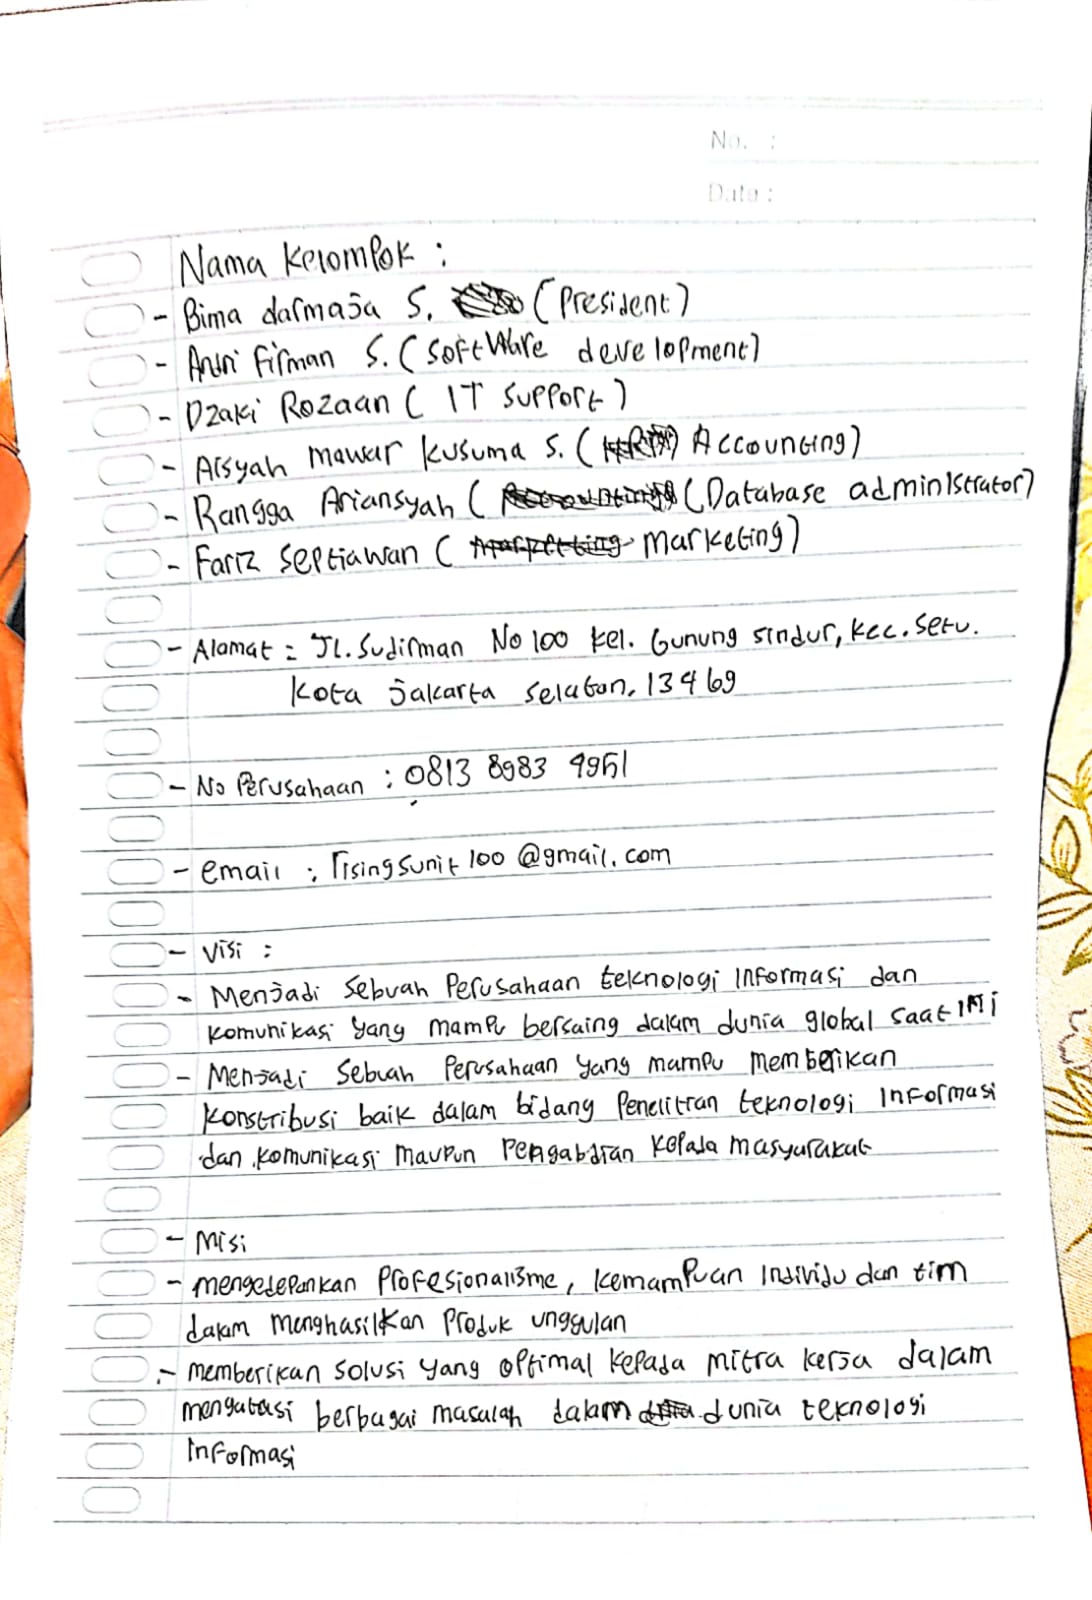 No. :
Date :
Nama Kelompok :
- Bima darmaja S. (President)
- Andri Firman S. (Software development)
- Dzaki Rozaan ( IT Support )
- Aisyah mawar kusuma S. ( Accounting)
- Rangga Ariansyah ( (Database administrator)
- Fariz Septiawan ( marketing)
- Alamat = JL. Sudirman No 100 kel. Gunung sindur, kec. Setu.
Kota jakarta selatan, 13469
- No Perusahaan : 0813 8983 9951
- email : risingsunit100@gmail.com
- Visi :
- Menjadi sebuah Perusahaan teknologi Informasi dan
komunikasi yang mampu bersaing dalam dunia global saat ini
- Menjadi sebuah Perusahaan yang mampu memberikan
konstribusi baik dalam bidang Penelitian teknologi Informasi
dan komunikasi maupun Pengabdian kepada masyarakat
- Misi
- mengedepankan Profesionalisme, kemampuan Individu dan tim
dalam menghasilkan Produk unggulan
- memberikan solusi yang optimal kepada mitra kerja dalam
mengatasi berbagai masalah dalam dunia teknologi
Informasi